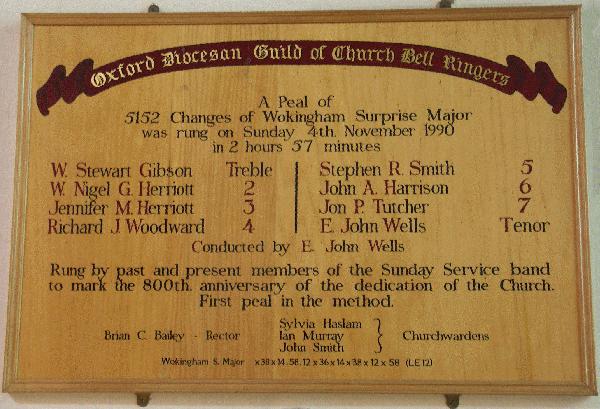 Oxford Diocesan Guild of Church Bell Ringers
A Peal of
5152 Changes of Wokingham Surprise Major
was rung on Sunday 4th. November 1990
in 2 hours 57 minutes
W. Stewart Gibson Treble
W. Nigel G. Herriott 2
Jennifer M. Herriott 3
Richard J. Woodward 4
Stephen R. Smith 5
John A. Harrison 6
Jon P. Tutcher 7
E. John Wells Tenor
Conducted by E. John Wells
Rung by past and present members of the Sunday Service band
to mark the 800th. anniversary of the dedication of the Church.
First peal in the method.
Brian C. Bailey - Rector
Sylvia Haslam
Ian Murray
John Smith
Churchwardens
Wokingham S. Major x38x14.58.12x36x14x38x12x58 (LE12)